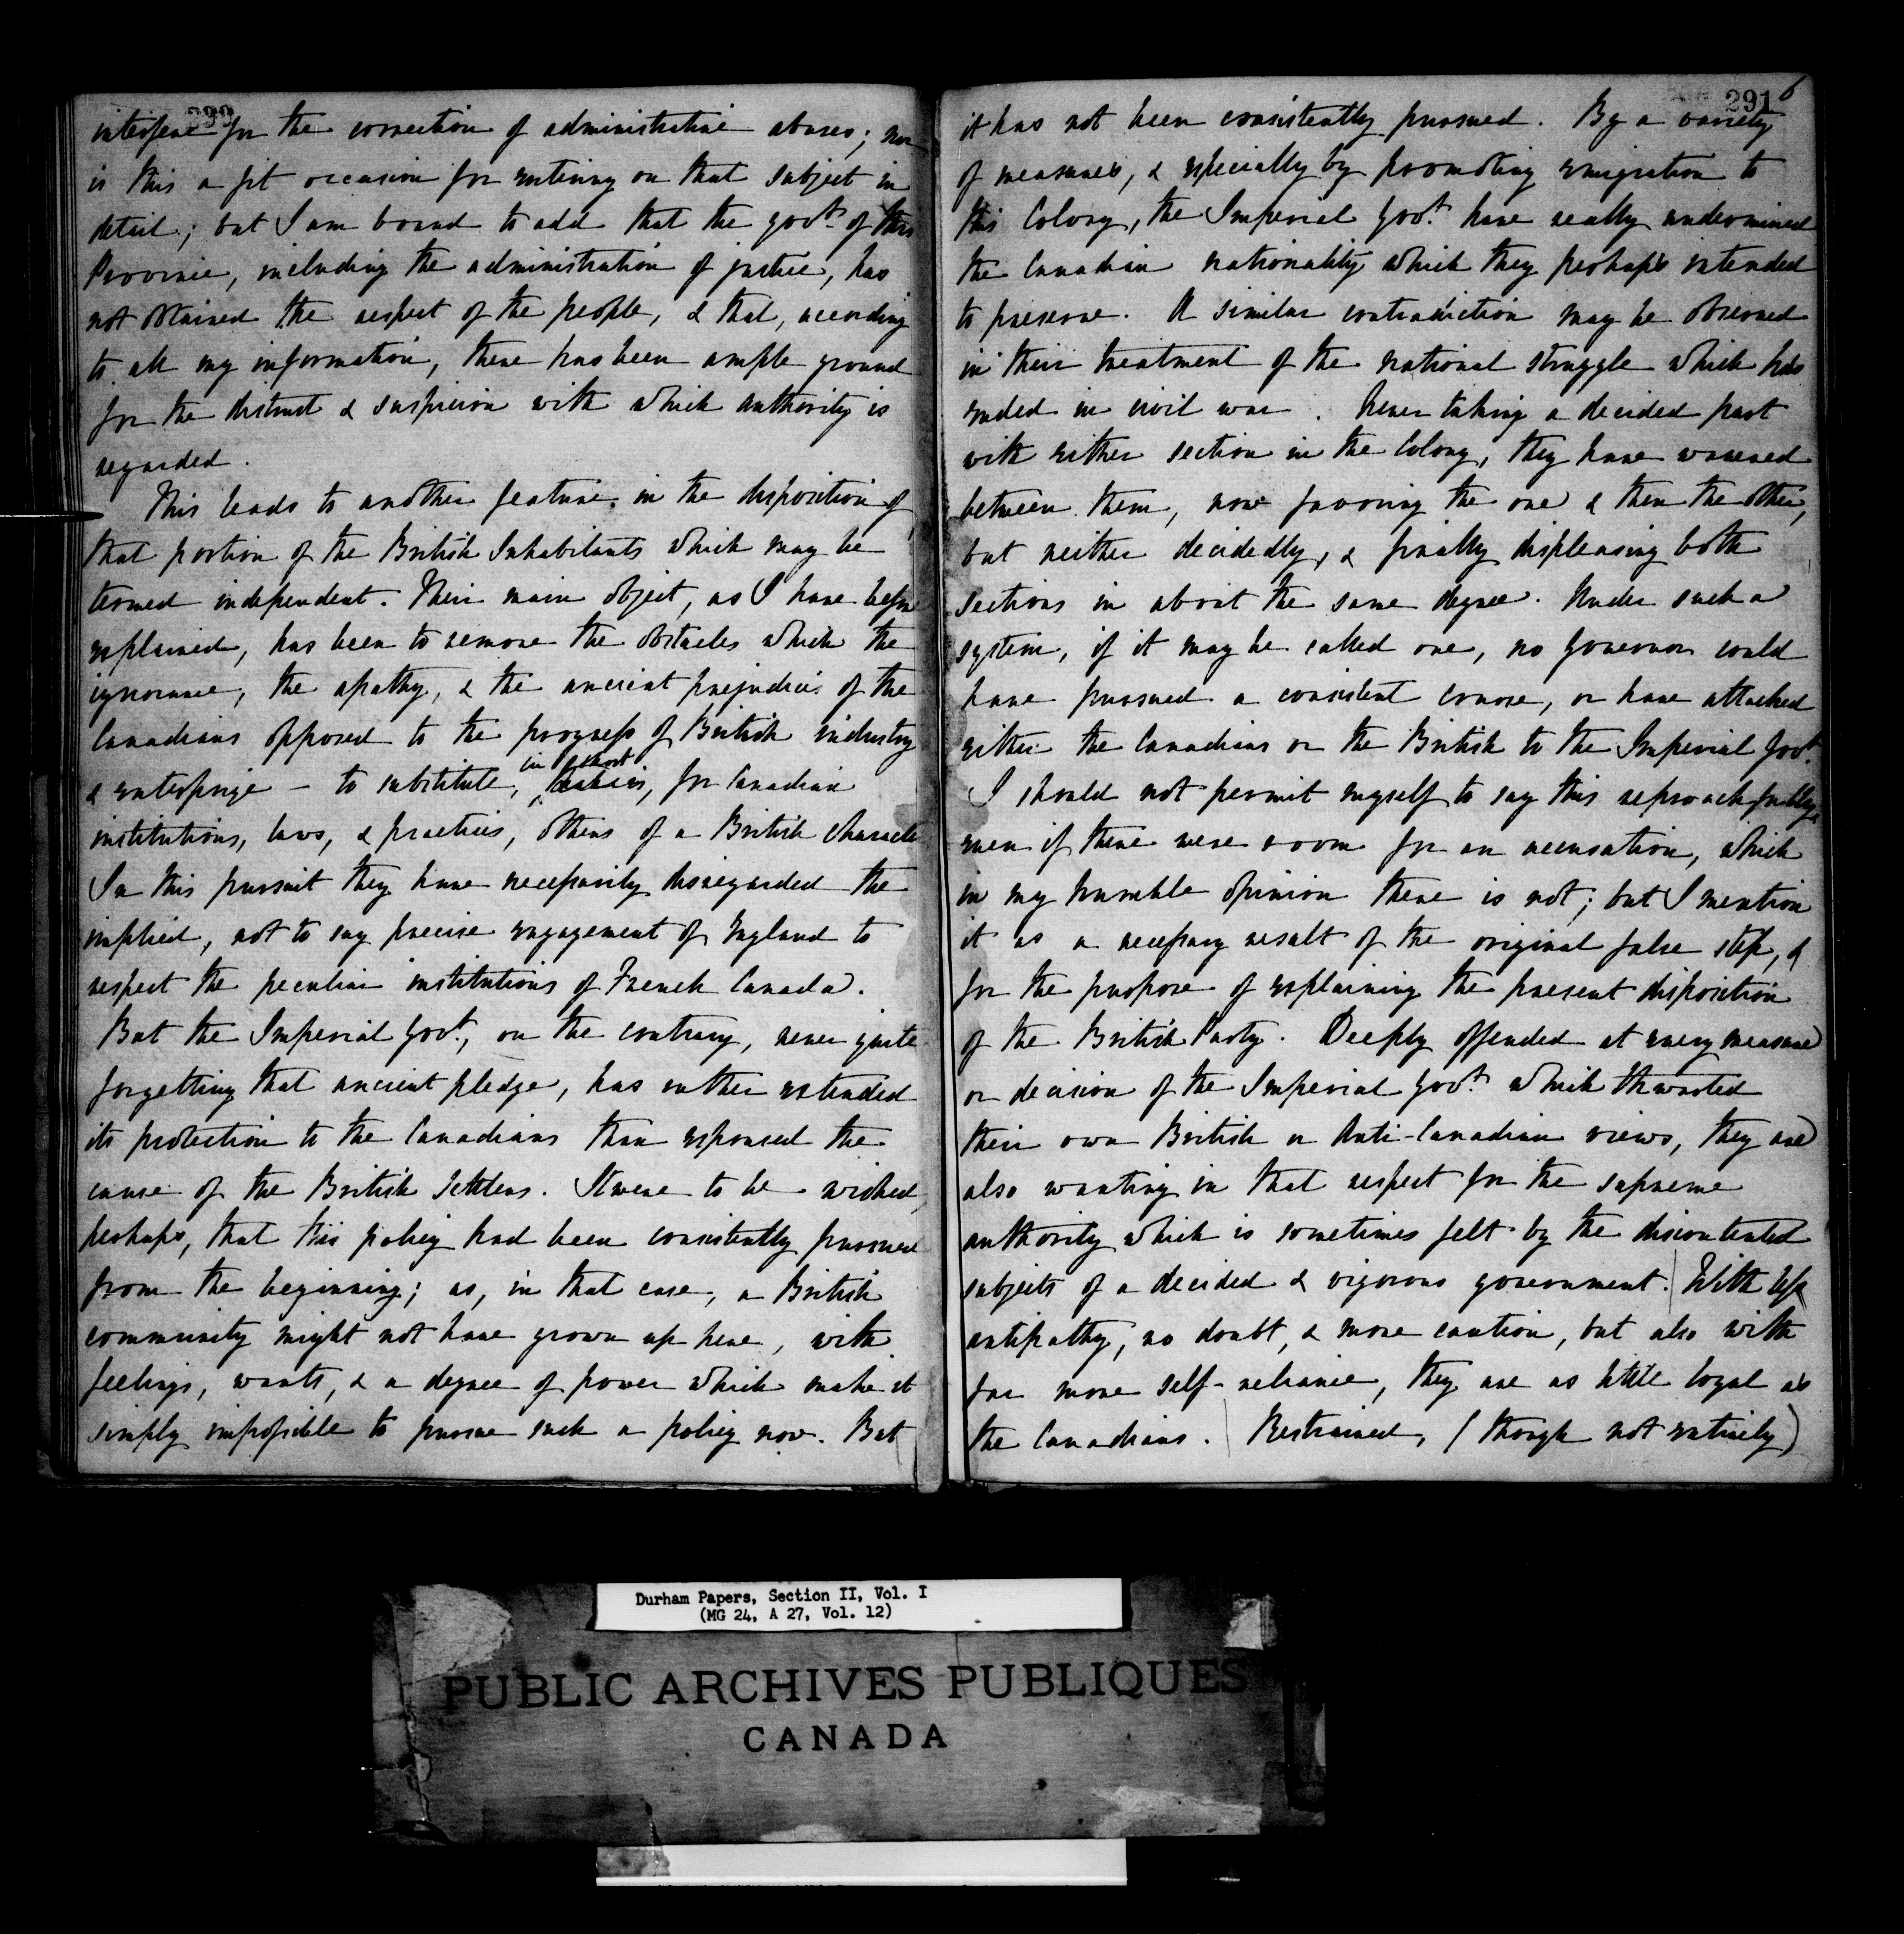 interfere for the correction of administrative abuses; nor
is this a fit occasion for entering on that subject in
detail; but I am bound to add that the govt. of this
Province, including the administration of justice, has
not obtained the respect of the people, & that, according
to all my information, there has been ample ground
for the distrust & suspicion with which authority is
regarded.
This leads to another feature in the disposition of
that portion of the British Inhabitants which may be
termed independent. Their main object, as I have before
explained, has been to remove the obstacles which the
ignorance, the apathy, & the ancient prejudices of the
Canadians opposed to the progress of British industry
in short
& enterprize – to substitute, for Canadian
institutions, laws, & practices, others of a British character
In this pursuit they have necessarily disregarded the
implied, not to say precise engagement of England to
respect the peculiar institutions of French Canada.
But the Imperial Govt., on the contrary, never quite
forgetting that ancient pledge, has rather extended
its protection to the Canadians than espoused the
cause of the British Settlers. It were to be wished,
perhaps, that this policy had been consistently pursued
from the beginning; as, in that case, a British
community might not have grown up here, with
feelings, wants, & a degree of power which make it
simply impossible to pursue such a policy now. But
291
6
it has not been consistently pursued. By a variety
of measures, & especially by promoting emigration to
this Colony, the Imperial Govt. have really undermined
the Canadian nationality which they perhaps intended
to preserve. A similar contradiction may be observed
in their treatment of the national struggle which has
ended in civil war. Never taking a decided part
with either section in the Colony, they have wavered
between them, now favoring the one & then the other,
but neither decidedly, & finally displeasing both
sections in about the same degree. Under such a
system, if it may be called one, no governor could
have pursued a consistent course, or have attached
either the Canadians or the British to the Imperial Govt.
I should not permit myself to say this reproachfully,
even if there were room for an accusation, which
in my humble opinion there is not; but I mention
it as a necessary result of the original false step, &
for the purpose of explaining the present disposition
of the British Party. Deeply offended at every measure
or decision of the Imperial Govt. which thwarted
their own British or Anti-Canadian views, they are
also wanting in that respect for the supreme
authority which is sometimes felt by the discontented
subjects of a decided & vigorous government. With less
antipathy, no doubt, & more caution, but also with
far more self-reliance, they are as little loyal as
the Canadians. Restrained, (though not entirely)
Durham Papers, Section II, Vol. I
(MG 24, A 27, Vol. 12)
PUBLIC ARCHIVES PUBLIQUES
CANADA